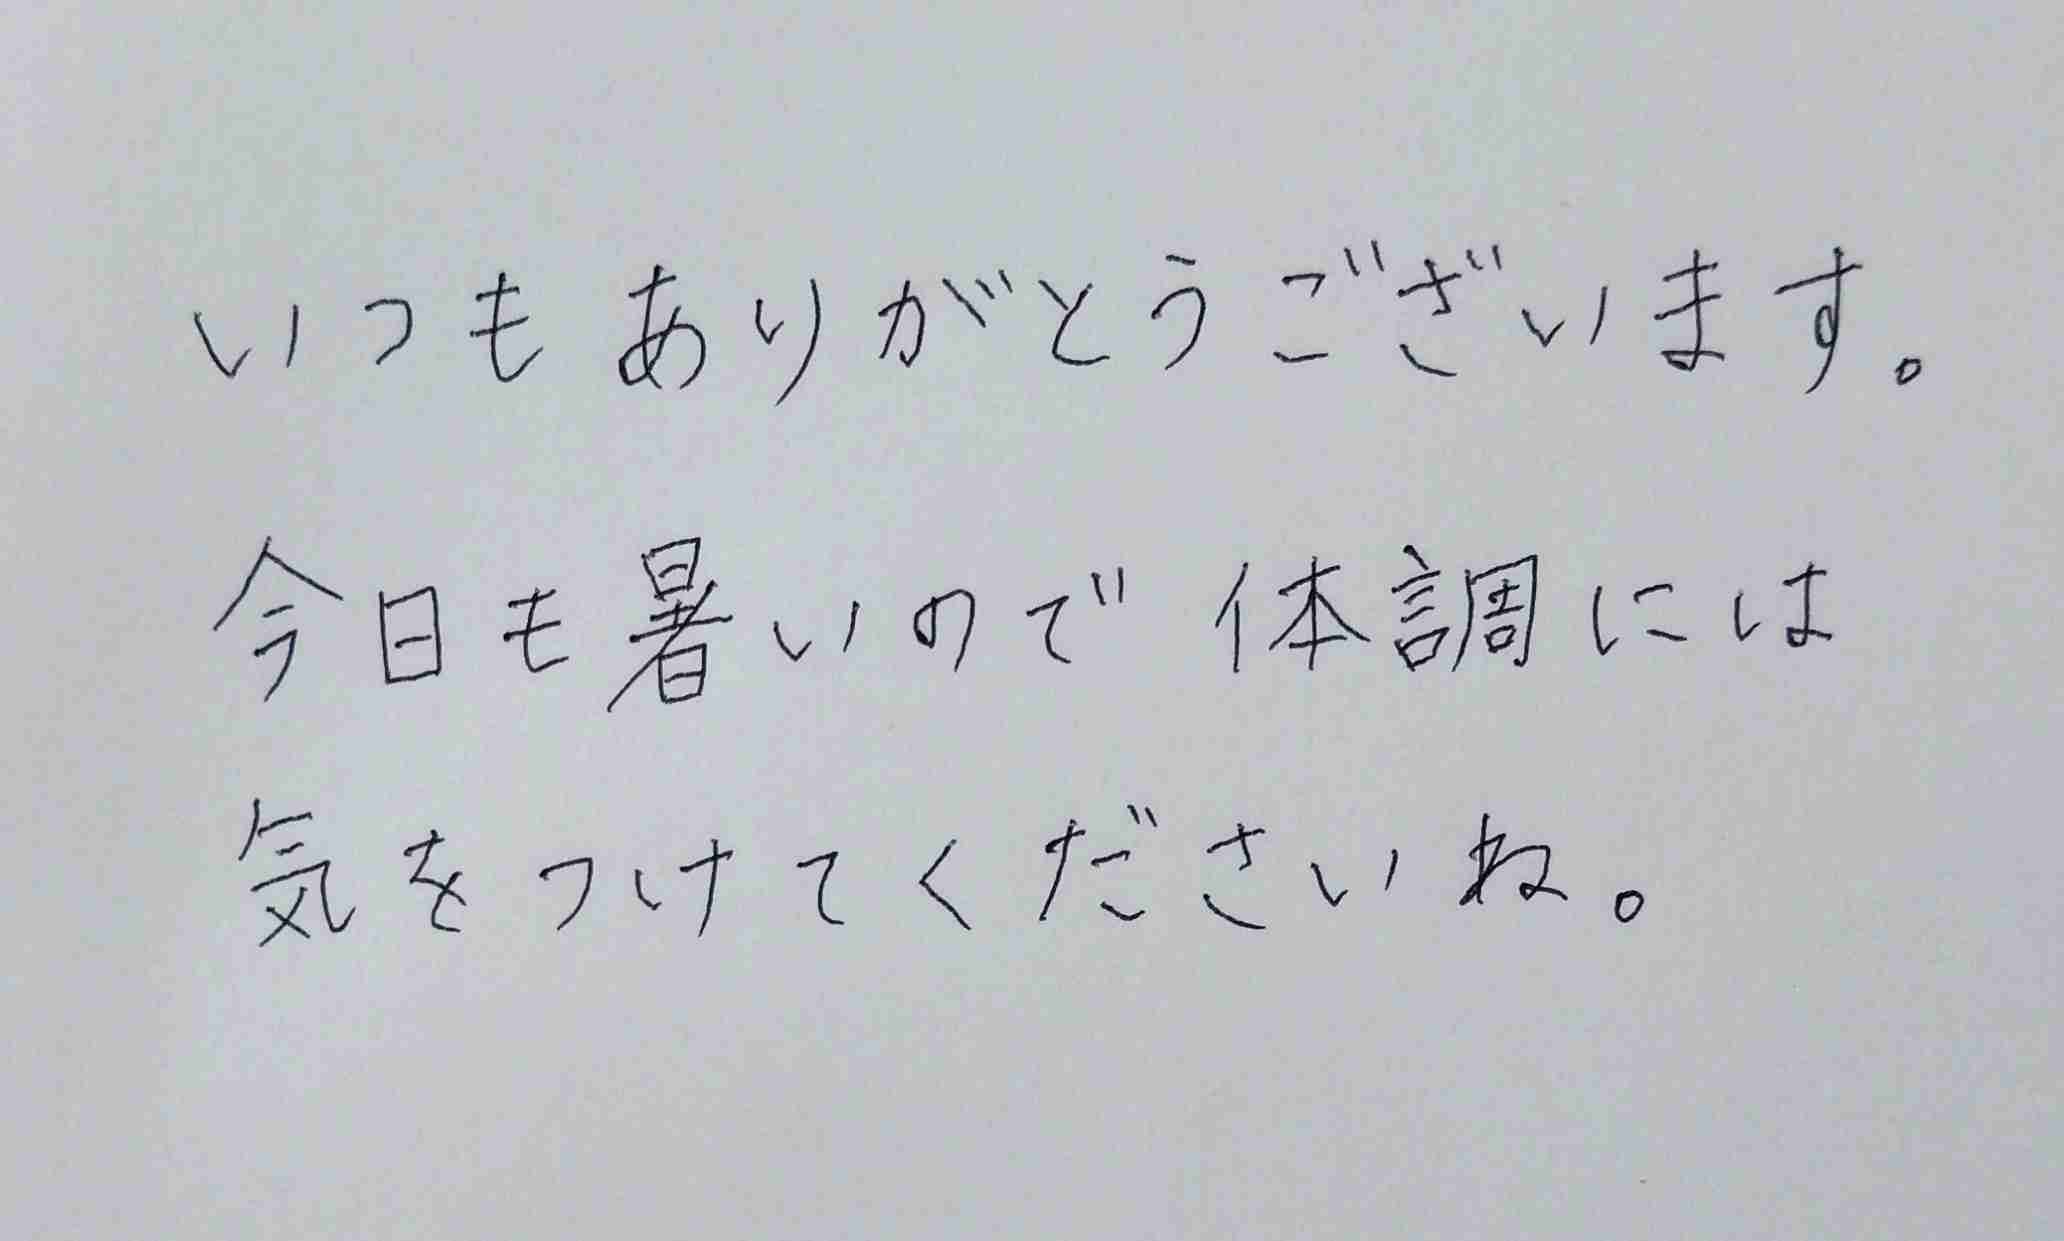 いつもありがとうございます。
今日も暑いので体調には
気をつけてくださいね。